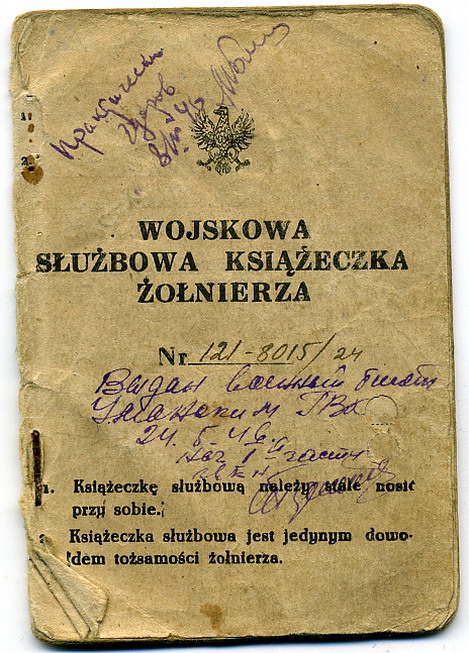 Практически
здоров
WOJSKOWA
SŁUŻBOWA KSIĄŻECZKA
ŻOŁNIERZA
Nr 121-8015/24
Выдан военный билет
Уманским ГВК
24. 5. 46.
1. Książeczkę służbową należy stale nosić
przy sobie.
2. Książeczka służbowa jest jedynym dowo-
dem tożsamości żołnierza.